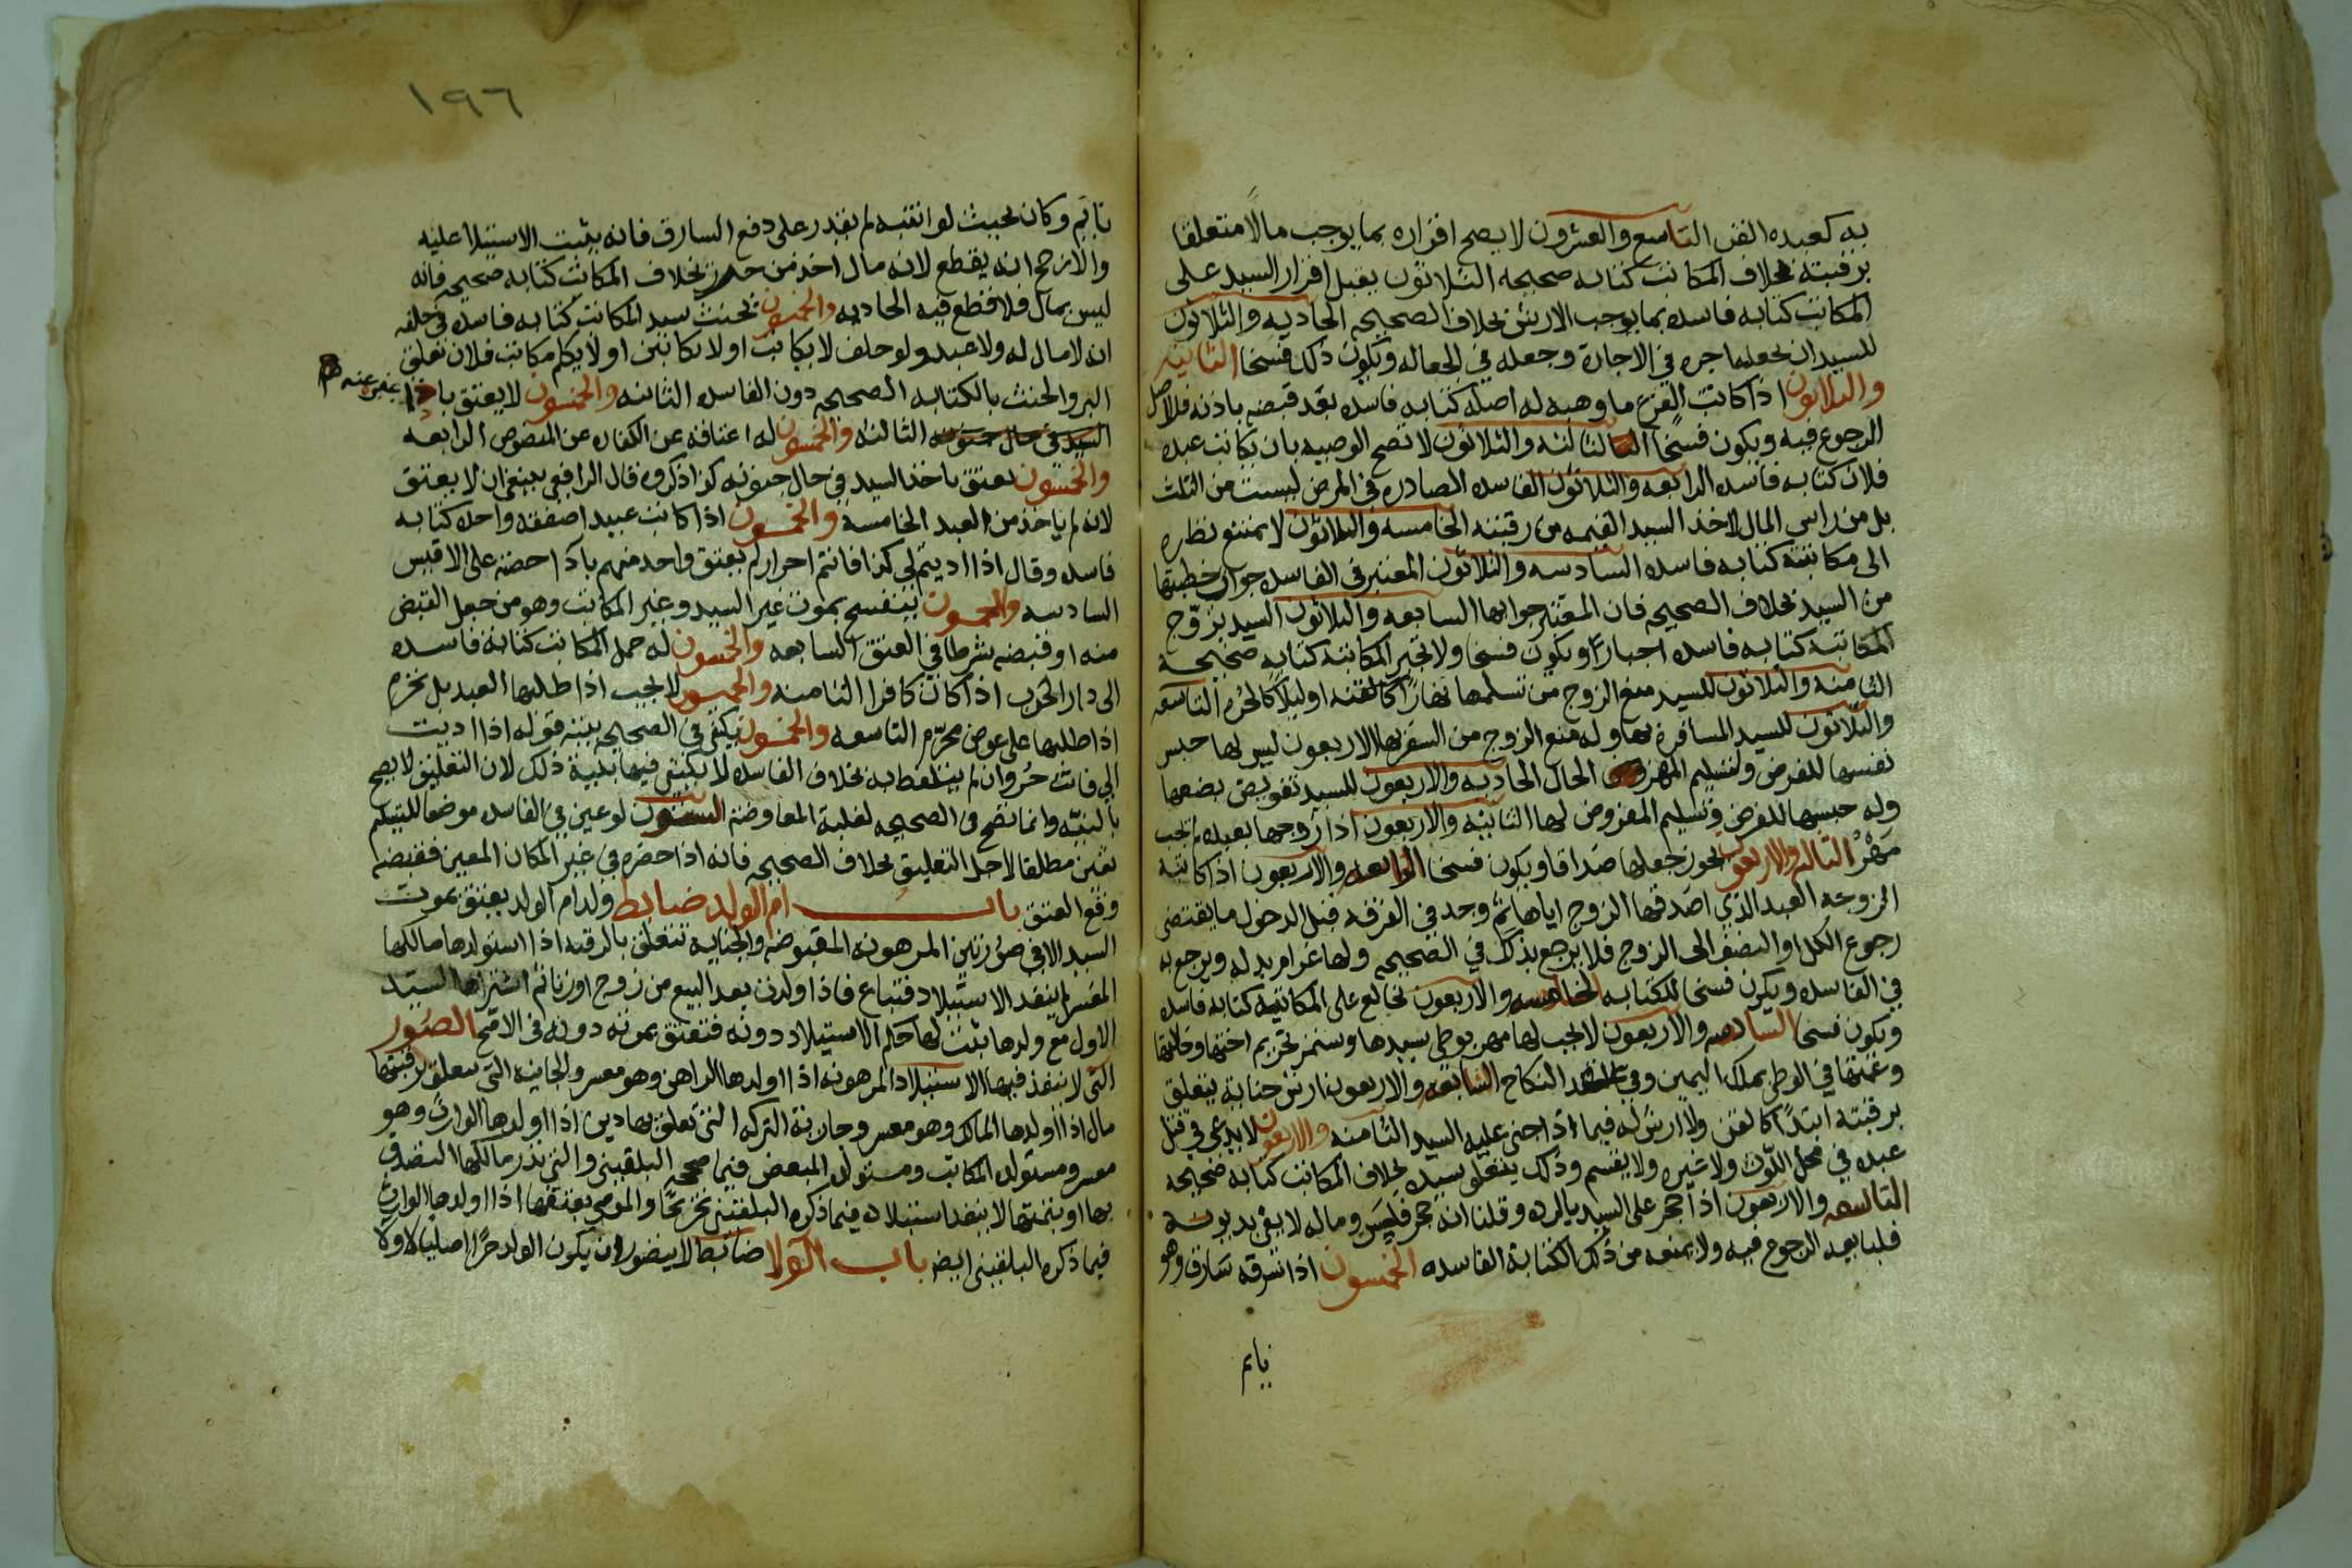 به كعبده القن التاسع والعشرون لا يصح اقراره بما يوجب مالا متعلقا
برقبته بخلاف المكاتب كتابه صحيحه الثلاثون يقبل اقرار السيد على
المكاتب كتابه فاسده بما يوجب الارش بخلاف الصحيحه الحاديه والثلاثون
للسيد ان يجعله اجره في الاجارة وجعله في الجعاله ويكون ذلك فسخا الثانيه
والثلاثون اذا كاتب الفرع ما وهبه له اصله كتابه فاسده بعد قبضه باذنه فللاصل
الرجوع فيه ويكون فسخا الثالثه والثلاثون لا تصح الوصيه بان يكاتب عبده
فلان كتابه فاسده الرابعه والثلاثون الفاسده الصادره في المرض ليست من الثلث
بل من راس المال لاخذ السيد القيمه من رقبته الخامسه والثلاثون لا يمتنع نظره
الى مكاتبته كتابه فاسده السادسه والثلاثون المعتبر في الفاسده جواز خطبتها
من السيد بخلاف الصحيحه فان المعتبر جوابها السابعه والثلاثون السيد يزوج
المكاتبه كتابه فاسده اجبارا ويكون فسخا ولا تجبر المكاتبه كتابه صحيحة
الثامنه والثلاثون للسيد منع الزوج من تسلمها نهارا كالقنه او ليلا كالحره التاسعه
والثلاثون للسيد المسافرة بها وله منع الزوج من السفر بها الاربعون ليس لها حبس
نفسها للفرض ولتسليم المهر الحال الحاديه والاربعون للسيد تفويض بضعها
وله حبسها للفرض وتسليم المفروض لها الثانيه والاربعون اذا زوجها بعبده لم يجب
مهر الثالثه والاربعون يجوز جعلها صداقا ويكون فسخا الرابعه والاربعون اذا كانت
الزوجه العبد الذي اصدقها الزوج اياها ثم وجد في الفرقه قبل الدخول ما يقتضي
رجوع الكل او النصف الى الزوج فلا يرجع بذلك في الصحيحه ولها غرام بدله ويرجع به
في الفاسده ويكون فسخا للكتابه الخامسه والاربعون تخالع على المكاتبه كتابه فاسده
ويكون فسخا السادسه والاربعون لا يجب لها مهر بوطي سيدها ويستمر تحريم اختها وخالتها
وعمتها في الوطي بملك اليمين وفي عقد النكاح السابعه والاربعون ارش جنايه يتعلق
برقبته ابتدا كالقن ولا ارش له فيما اذا جنى عليه السيد الثامنه والاربعون لا يدعي في قتل
عبده في محل اللوث ولا غيره ولا يقسم وذلك يتعلق بسيده بخلاف المكاتب كتابه صحيحه
التاسعه والاربعون اذا حجر على السيد بالرده وقلنا انه حجر فلس وماله لا يفي بديونه
فلبايعه الرجوع فيه ولا يمنعه من ذلك الكتابة الفاسده الخمسون اذا سرقه سارق وهو
نايم
١٩٦
نايم وكان بحيث لو انتبه لم يقدر على دفع السارق فانه يثبت الاستيلا عليه
والارجح انه يقطع لانه مال اخذ من حرز بخلاف المكاتب كتابه صحيحه فانه
ليس بمال فلا قطع فيه الحاديه والخمسون يحنث سيد المكاتب كتابه فاسده في حلفه
ان لا مال له ولا عبد ولو حلف لا يكاتب او لا يكاتبن او لا يكلم مكاتب فلان تعلق
البر والحنث بالكتابه الصحيحه دون الفاسده الثانيه والخمسون لا يعتق با غيره عنه
السيد في حال جنونه الثالثه والخمسون له اعتاقه عن الكفاره عن المنصوص الرابعه
والخمسون يعتق باخذ السيد في حال جنونه كذا ذكروه قال الرافعي ينبغي ان لا يعتق
لانه لم ياخذ من العبد الخامسة والخمسون اذا كاتب عبيدا صفقه واحده كتابه
فاسده وقال اذا اديتم لي كذا فانتم احرار لم يعتق واحد منهم بادا حصته على الاقيس
السادسه والخمسون ينفسح بموت غير السيد وغير المكاتب وهو من جعل القبض
منه او قبضه شرطا في العتق السابعه والخمسون له حمل المكاتب كتابة فاسده
الى دار الحرب اذا كان كافرا الثامنه والخمسون لا يجب اذا طلبها العبد بل تحرم
اذا طلبها على عوض محرم التاسعه والخمسون يكفي في الصحيحه بنيته قوله اذا اديت
الي فانت حر وان لم يتلفظ به بخلاف الفاسده لا يكتفى فيها بنية ذلك لان التعليق لا يصح
بالنيه وانما تصح في الصحيحه لغلبة المعاوضه الستون لو عين في الفاسده موضعا للتسليم
تعين مطلقا لاجل التعليق بخلاف الصحيحه فانه اذا احضره في غير المكان المعين فقبضه
وقع العتق باب ام الولد ضابط ولد ام الولد يعتق بموت
السيد الا في صورتين المرهونه المقبوضه والجنايه تتعلق بالرقبه اذا استولدها مالكها
المعسر لم ينفذ الاستيلاد فتباع فاذا ولدت بعد البيع من زوج او زنا ثم اشتراها السيد
الاول مع ولدها يثبت لها حكم الاستيلاد دونه فتعتق بموته دونه في الاصح الصور
التي لا ينفذ فيها الاستيلاد المرهونه اذا اولدها الراهن وهو معسر والجانيه التي يتعلق برقبتها
مال اذا اولدها المالك وهو معسر وجارية التركه التي تعلق بها دين اذا اولدها الوارث وهو
معسر ومستولده المكاتب ومستولده المبعض فيما صححه البلقيني والتي نذر مالكها التصدق
بها او بثمنها لا ينفذ استيلاده فيما ذكره البلقيني تخريجا والموصى بعتقها اذا اولدها الوارث
فيما ذكره البلقيني ايضا باب الولا ضابط لا يتصور ان يكون الولد حرا اصليا ولا ولا